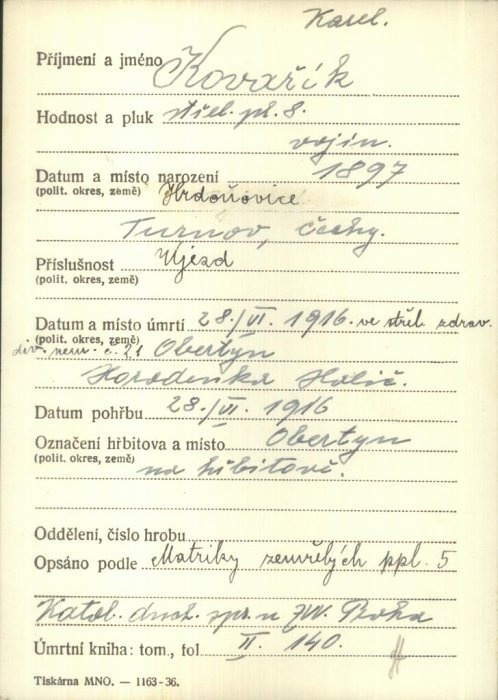 Karel.
Příjmení a jméno Kovařík
Hodnost a pluk střel. pl. 8.
vojín.
Datum a místo narození 1897
(polit. okres, země) Hrdoňovice
Turnov, Čechy.
Příslušnost Ujezd
(polit. okres, země)
Datum a místo úmrtí 28./VI. 1916. ve střel. zdrav.
(polit. okres, země)
div. nem. č. 21 Obertyn
Horodenka Halič.
Datum pohřbu 28./VI. 1916
Označení hřbitova a místo Obertyn
(polit. okres, země) na hřbitově.
Oddělení, číslo hrobu
Opsáno podle Matriky zemřelých ppl. 5
Katol. duch. spr. u ZVV. Praha
Úmrtní kniha: tom., fol II. 140.
Tiskárna MNO. — 1163-36.